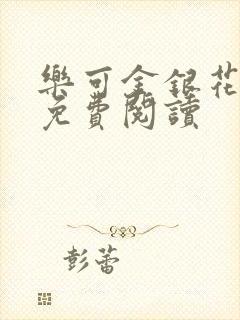 樂可金銀花
免費閱讀
彭蕾